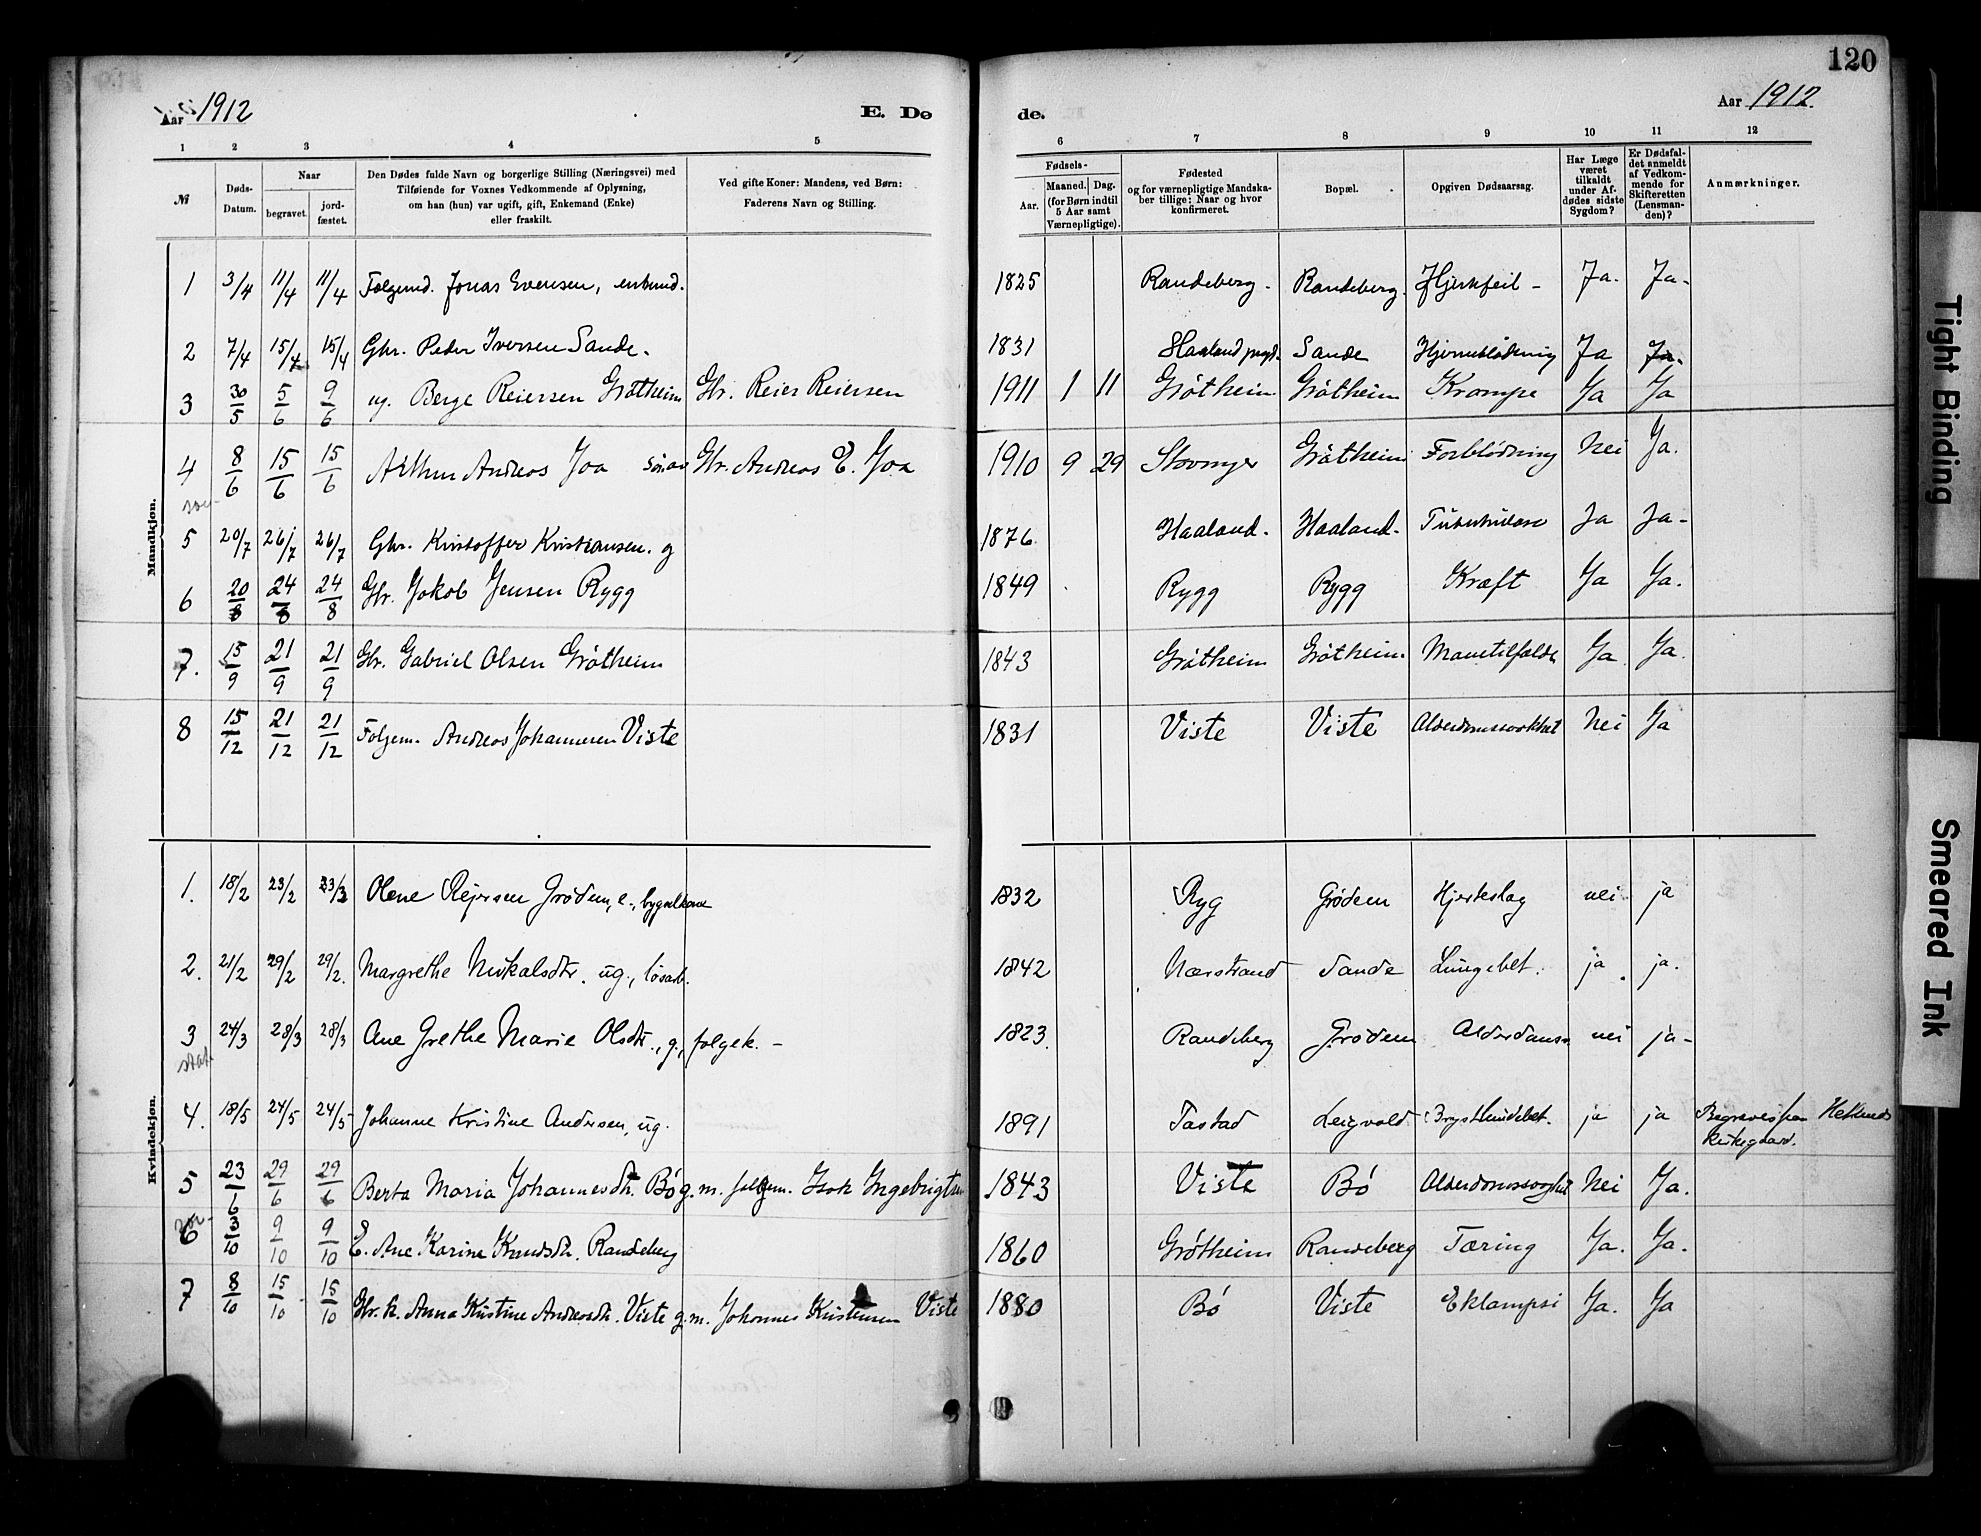 120
Aar 1912
E. Dø
de.
Aar 1912.
1 2 3 4 5
6 7 8 9 10 11 12
№
Døds-Datum.
Naar
begravet.
jord-fæstet.
Den Dødes fulde Navn og borgerlige Stilling (Næringsvei) med
Tilføiende for Voxnes Vedkommende af Oplysning,
om han (hun) var ugift, gift, Enkemand (Enke)
eller fraskilt.
Ved gifte Koner: Mandens, ved Børn:
Faderens Navn og Stilling.
Fødsels-
Aar.
Maaned. Dag.
(for Børn indtil
5 Aar samt
Værnepligtige).
Fødested
og for værnepligtige Mandska-
ber tillige: Naar og hvor
konfirmeret.
Bopæl.
Opgiven Dødsaarsag.
Har Læge
været
tilkaldt
under Af-
dødes sidste
Sygdom?
Er Dødsfal-
det anmeldt
af Vedkom-
mende for
Skifteretten
(Lensman-
den)?
Anmærkninger.
Mandkjøn.
1 3/4 11/4 11/4 Folgemd. Jonas Evensen, enkemd. 1825 Randeberg. Randeberg. Hjertefeil - Ja. Ja.
2 7/4 15/4 15/4 Gbr. Peder Iversen Sande. 1831 Haaland prgd. Sande Hjerneblødning Ja Ja.
3 30/5 5/6 9/6 ug. Berge Reiersen Grøtheim Gbr. Reier Reiersen 1911 1 11 Grøtheim Grøtheim Krampe Ja Ja
4 8/6 15/6 15/6 Arthur Andreas Joa søn av Gbr. Andreas E. Joa 1910 9 29 Stavanger Grøtheim Forblødning Nei Ja.
5 20/7 26/7 26/7 Gbr. Kristoffer Kristiansen. g 1876 Haaland. Haaland. Tuberkulose Ja Ja-
6 20/8 24/8 24/8 Gbr. Jakob Jensen Rygg 1849 Rygg Rygg Kræft Ja Ja.
7. 15/9 21/9 21/9 Gbr. Gabriel Olsen Grøtheim 1843 Grøtheim Grøtheim Mavetilfælde Ja Ja.
8 15/12 21/12 21/12 Folgem. Andreas Johannesen Viste 1831 Viste Viste Alderdomssvakhet Nei Ja
Kvindekjøn.
1. 18/2 23/2 23/2 Olene Rejersen Grødem, e., bygselkone 1832 Ryg Grødem Hjerteslag nei ja
2. 21/2 29/2 29/2. Margrethe Mikalsdtr. ug., løsarb. 1842 Nærstrand Sande Lungebet. ja. ja.
3 24/3 28/3 28/3 Ane Grethe Marie Olsdtr., g., folgek. - 1823. Randeberg Grødem Alderdomss nei ja-
4. 18/5 24/5 24/5 Johanne Kristine Andersen, ug. 1891 Tastad Leigvold Brysthindebet. ja ja Begraves paa Hetlands
kirkegaard.
5 23/6 29/6 29/6 Berta Maria Johannesdtr. Bø g.m. folgem. Isak Ingebrigtsen 1843 Viste Bø Alderdomssvaghet Nei Ja.
6 3/10 9/10 9/10 E. Ane Karine Knudsdtr. Randeberg 1860 Grøtheim Randeberg Tæring Ja. Ja.
7 8/10 15/10 15/10 Gbr. k. Anna Kristine Andreasdtr. Viste g.m. Johannes Kristensen Viste 1880 Bø Viste Eklampsi Ja. Ja
Tight Binding
Smeared Ink